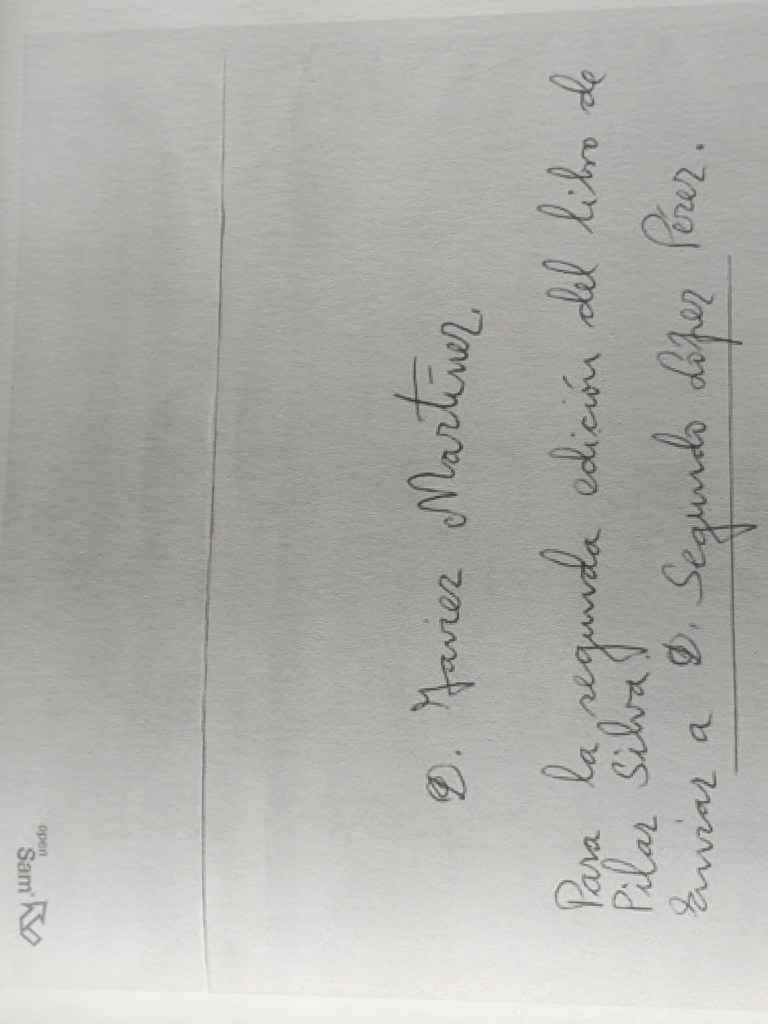 open
Sam'
D. Javier Martínez,
Para la segunda edición del libro de
Pilar Silva.
Enviar a D. Segundo López Pérez.